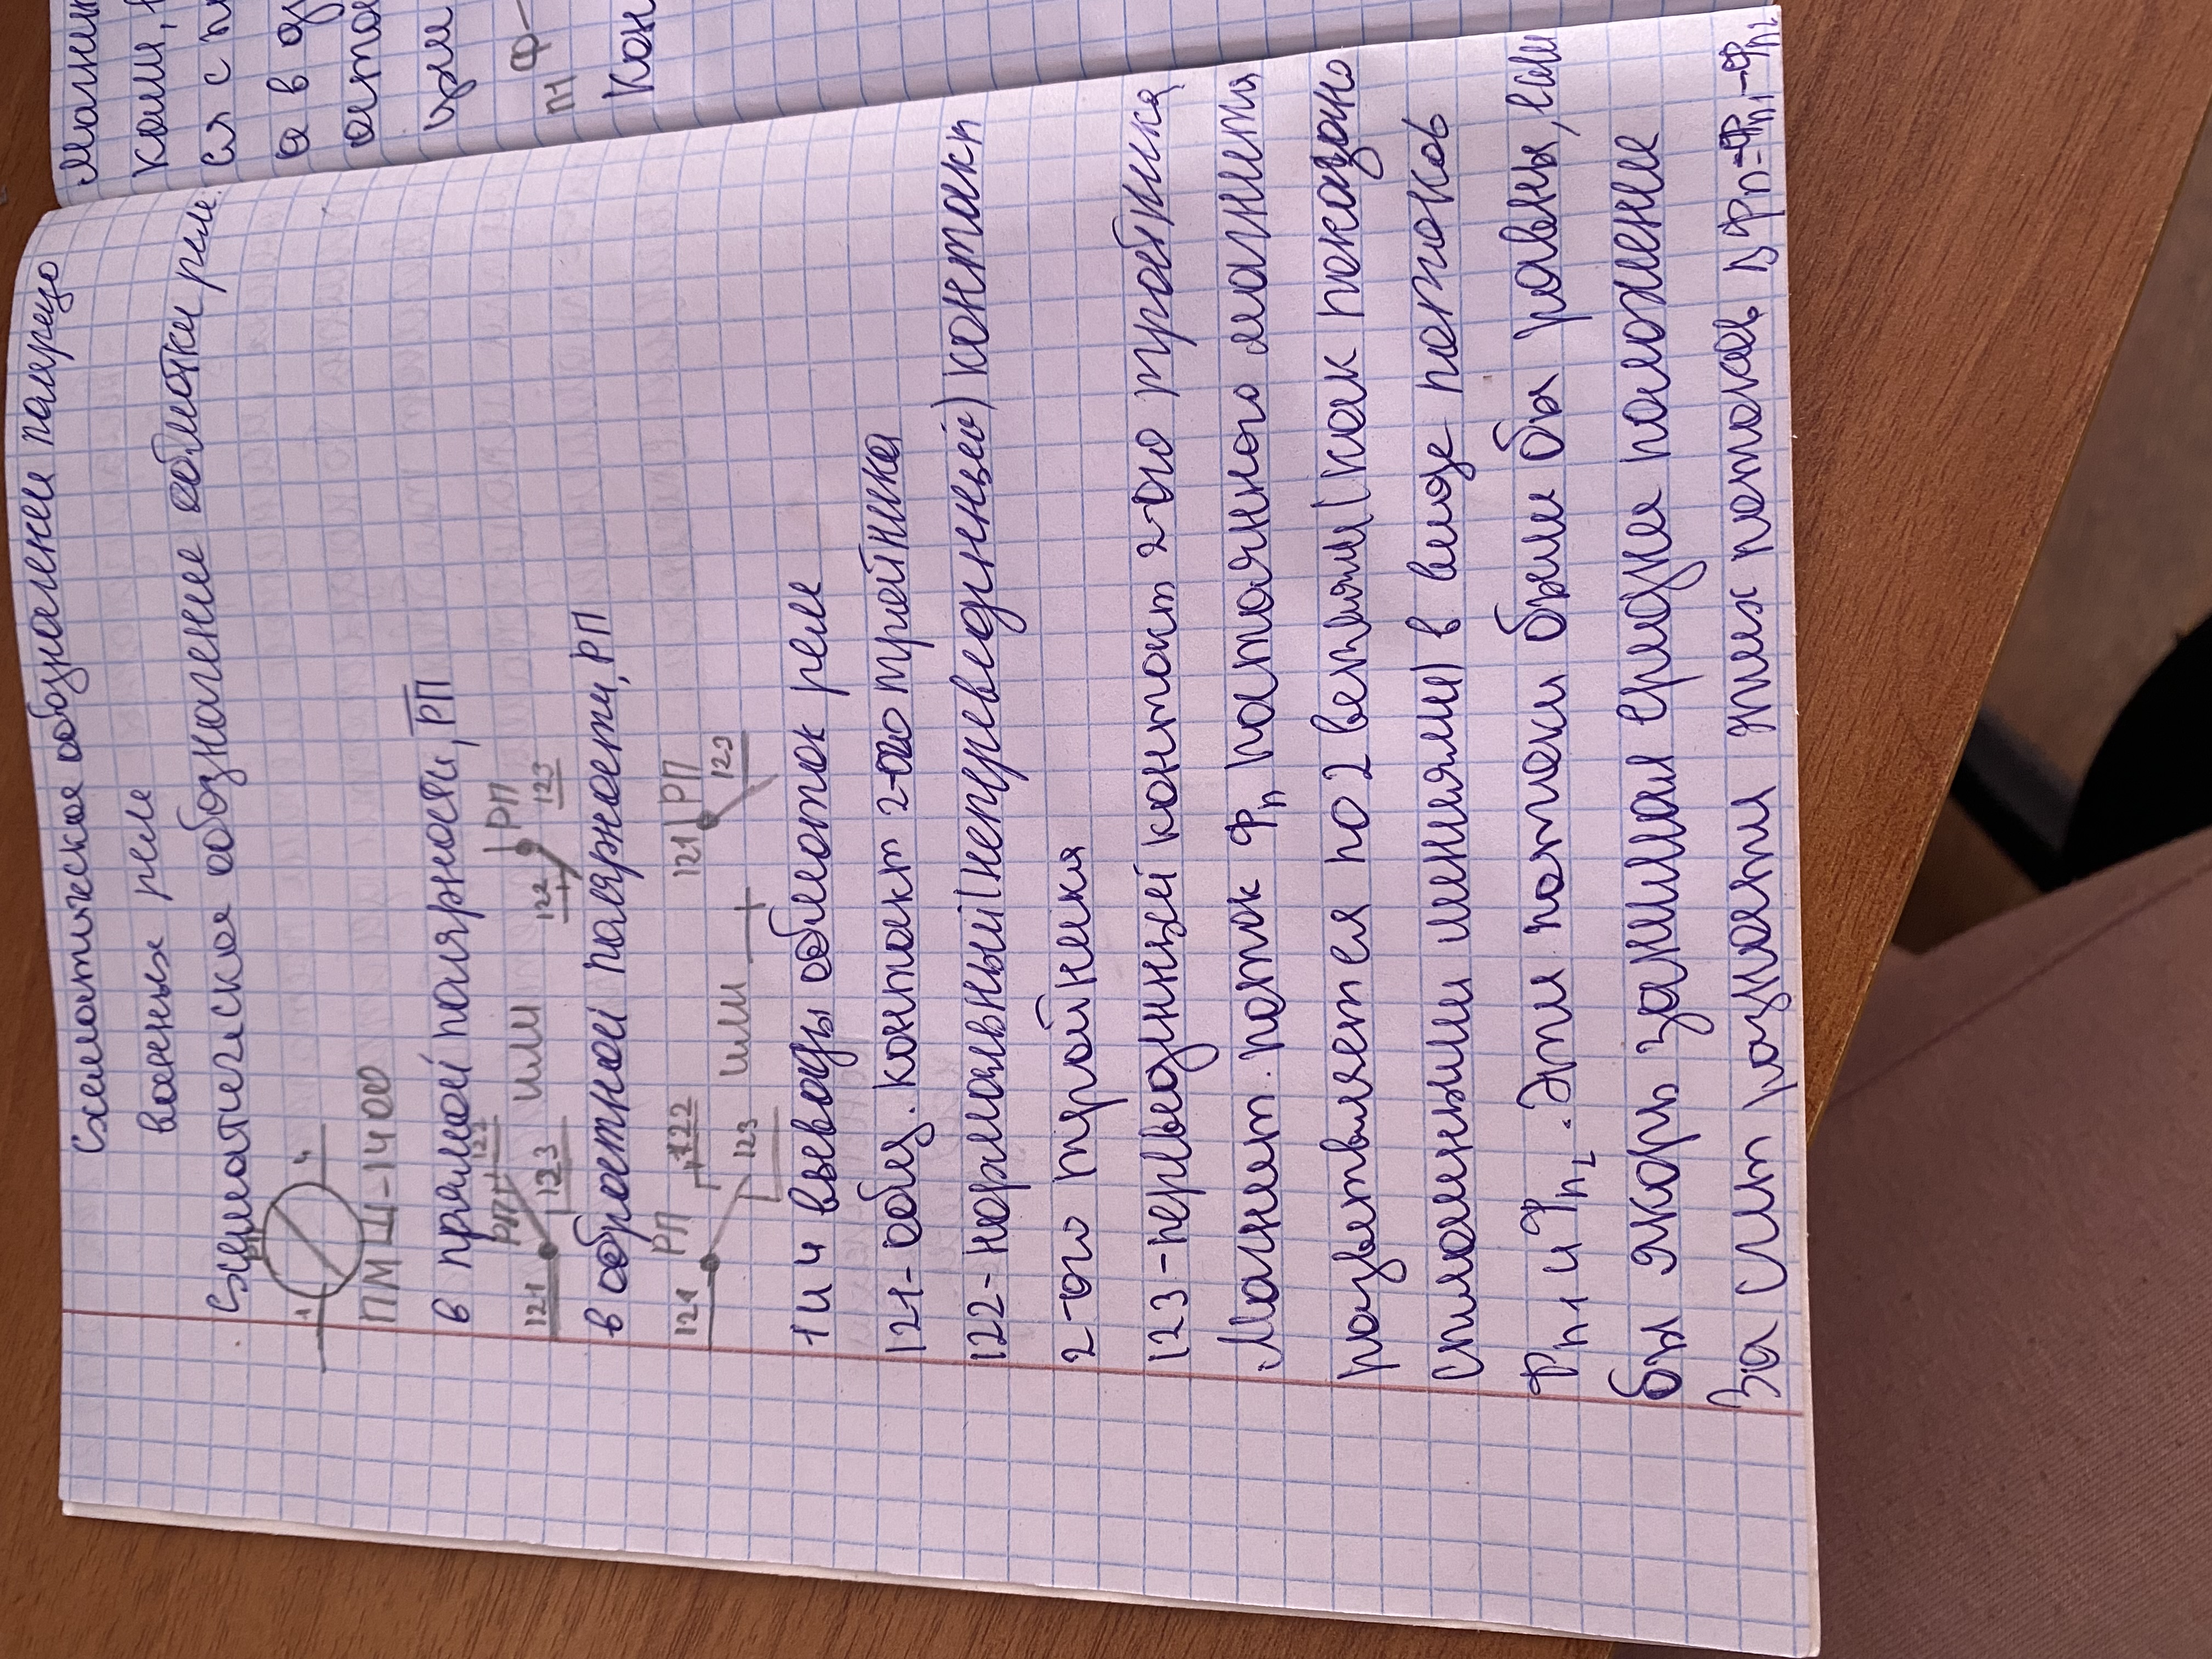 Схематическое обозначении поляризо
ванных реле
Схематическое обозначение обмотки реле
1 4
ПМШ-1400
в прямой полярности, РП
121 РП 122 123 или 122 РП 123
в обратной полярности, РП
121 РП 122 123 или 121 РП 123
1 и 4 выводы обмоток реле
121- общ. контакт 2-ого тройника
122- нормальный (непреведенный) контакт
2-ого тройника
123 -переводинный контакт 2-ого тройника
Магнит. поток Фп постоянного магнита
разветвляется по 2 ветвям (как показано
сплошными линиями) в виде потоков
Фп1 и Фп2. Эти потоки были бы равны, если
бы якорь занимал средне положение
За счт разности этих потоков ΔФп=Фп1-Фп2
магнит
кони,
ся с п
а в од
ато
цеи
п1 Ф-
Кон